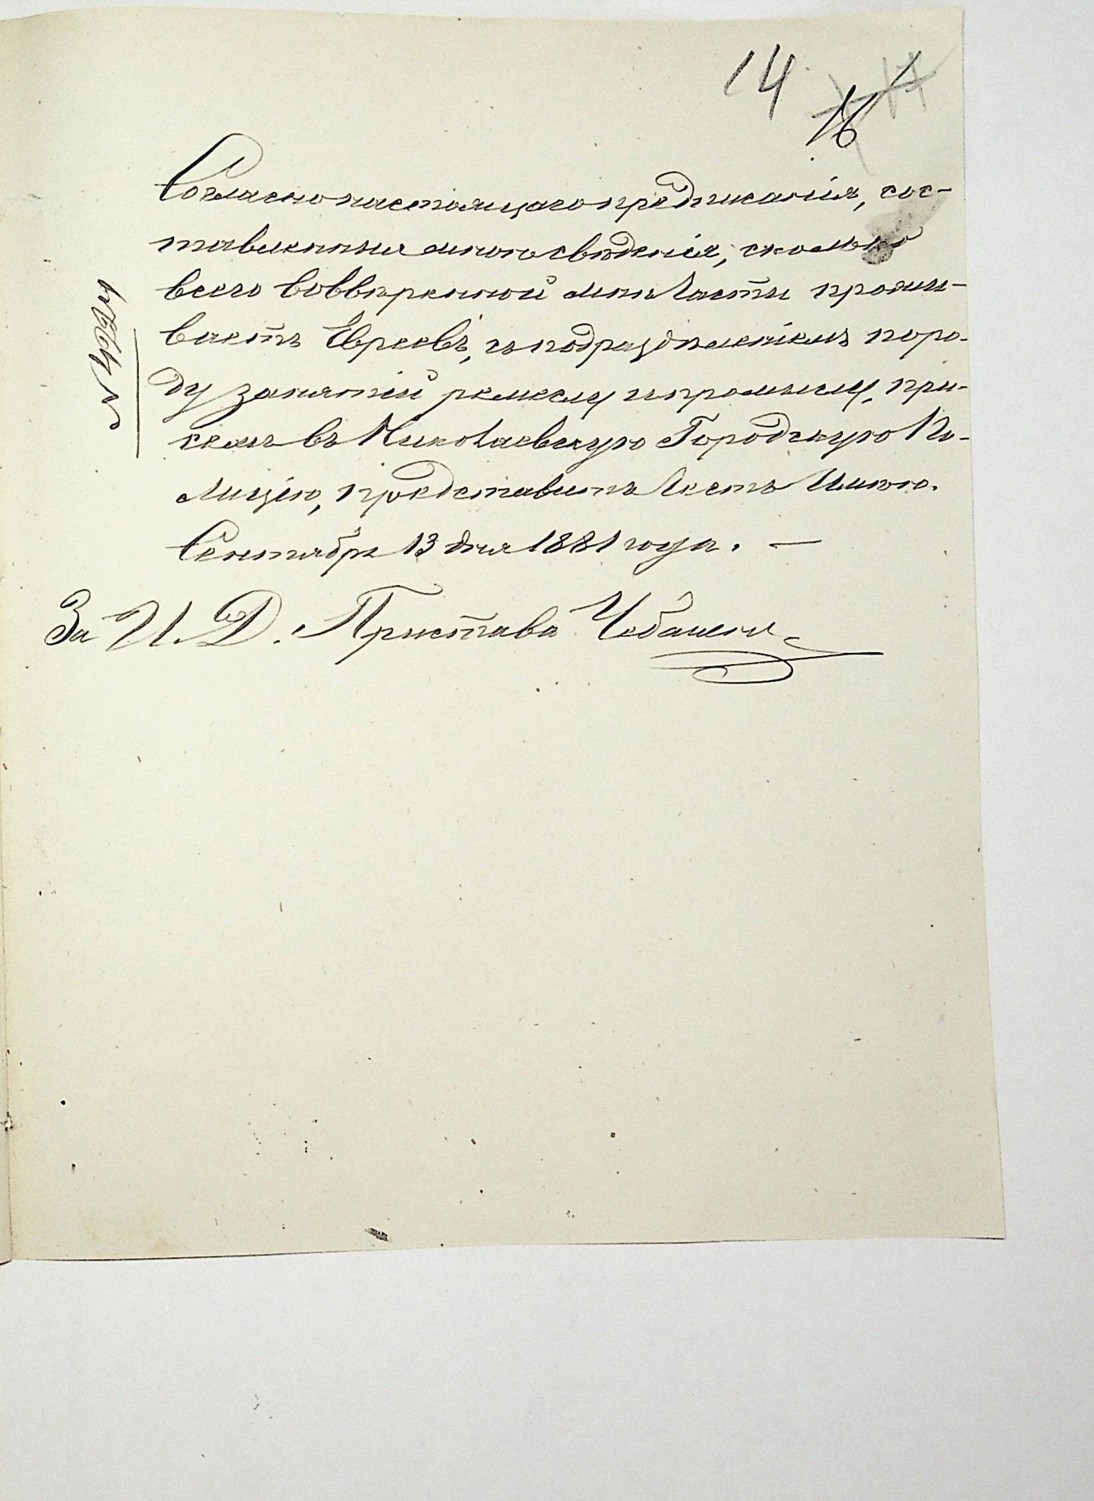 14
16
Согласно настоящаго предписанія, сос-
тавленныя мною свѣденія, сколько
всего во ввѣренной мнѣ Части прожи-
ваетъ Евреевъ, съ подраздѣленіемъ по ро-
ду занятій ремеслу и промыслу, при-
семъ въ Николаевскую Городскую По-
лицію, представить Честь Имѣю.
Сентября 13 дня 1881 года. —
За И. Д. Пристава